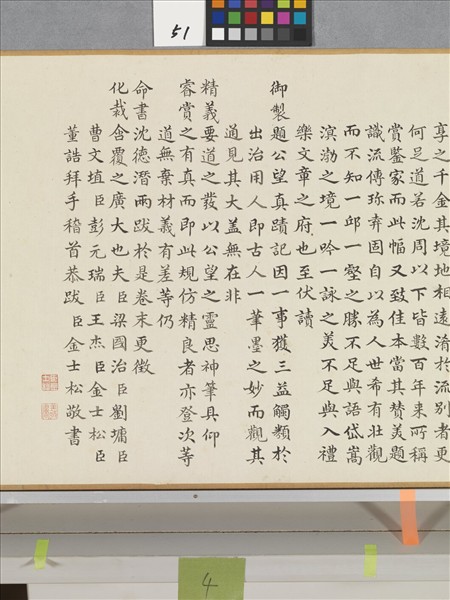 51
享之千金其境地相遠淆於流别者更
何足道若沈周以下皆數百年来所稱
賞鑒家而此幅又致佳本當其賛美題
識流傳珎弆固自以為人世希有壮觀
而不知一邱一壑之勝不足與語岱嵩
溟渤之境一吟一詠之美不足與入禮
樂文章之府也至伏讀
御製題公望真蹟記因一事獲三益觸類於
出治用人即古人一筆墨之妙而觀其
道見其大盖無在非
精義要道之發以公望之靈思神筆具仰
睿賞之有真而即此規仿精良者亦登次等
道無棄材義有差等仍
命書沈德潛兩跋於是卷末更徵
化裁含覆之廣大也夫臣梁國治臣劉墉臣
曹文埴臣彭元瑞臣王杰臣金士松臣
董誥拜手稽首恭跋 臣金士松敬書
4